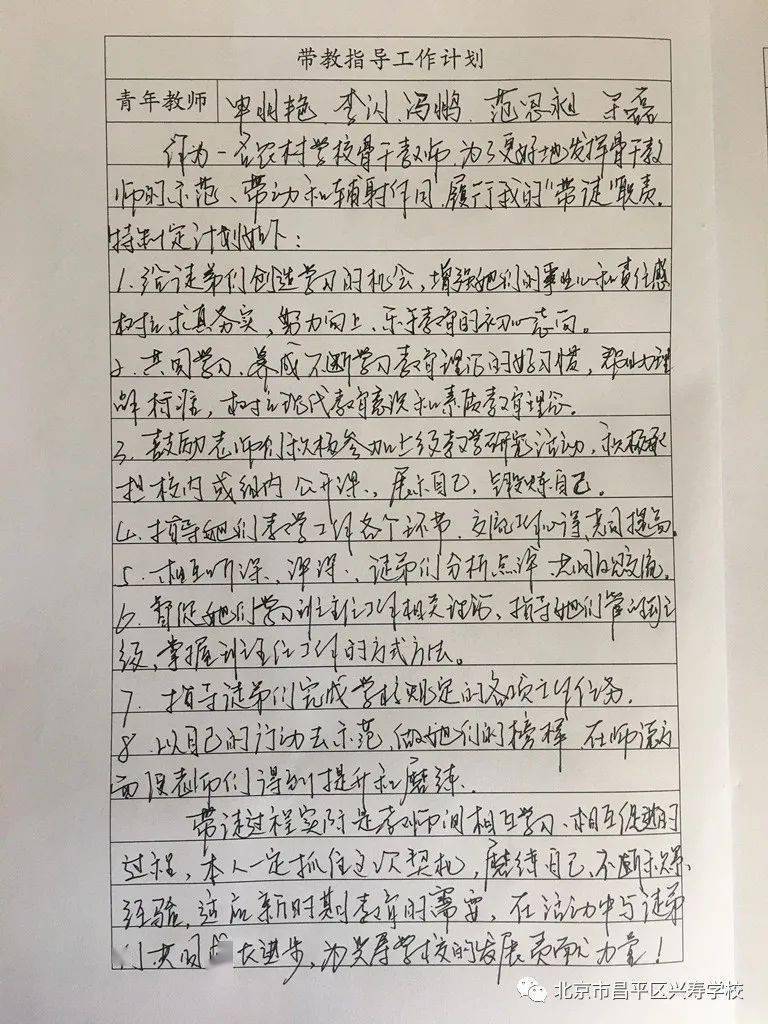 带教指导工作计划
青年教师 申明艳、李闪、冯鹏、范恩昶、王磊
作为一名农村学校骨干教师,为了更好地发挥骨干教
师的示范、带动和辅射作用,履行我的“带徒”职责。
特制定计划如下:
1、给徒弟们创造学习的机会,增强她们的事业心和责任感
树立求真务实,努力向上、乐于教育的初心志向。
2、共同学习、养成不断学习教育理论的好习惯,理
解标准,树立现代教育意识和素质教育理念。
3、鼓励老师们积极参加上级教学研究活动,积极承
担校内或组内公开课、展示自己、锻炼自己。
4、指导她们教学工作各个环节、交流工作心得、共同提高。
5、相互听课、评课、徒弟们分析点评 共同交流。
6、督促她们学习班主任工作相关理论、指导她们管理班
级,掌握班主任工作的方式方法。
7、指导徒弟们完成学校规定的各项工作任务。
8、以自己的行动去示范,做她们的榜样 在师德方
面使老师们得到提升和磨练、
带徒过程实际是教师间相互学习、相互促进的
过程,本人一定抓住这次契机,磨练自己、不断积累
经验,适应新时期教育的需要,在活动中与徒弟
们共同 大进步,为兴寿学校的发展贡献力量!
北京市昌平区兴寿学校